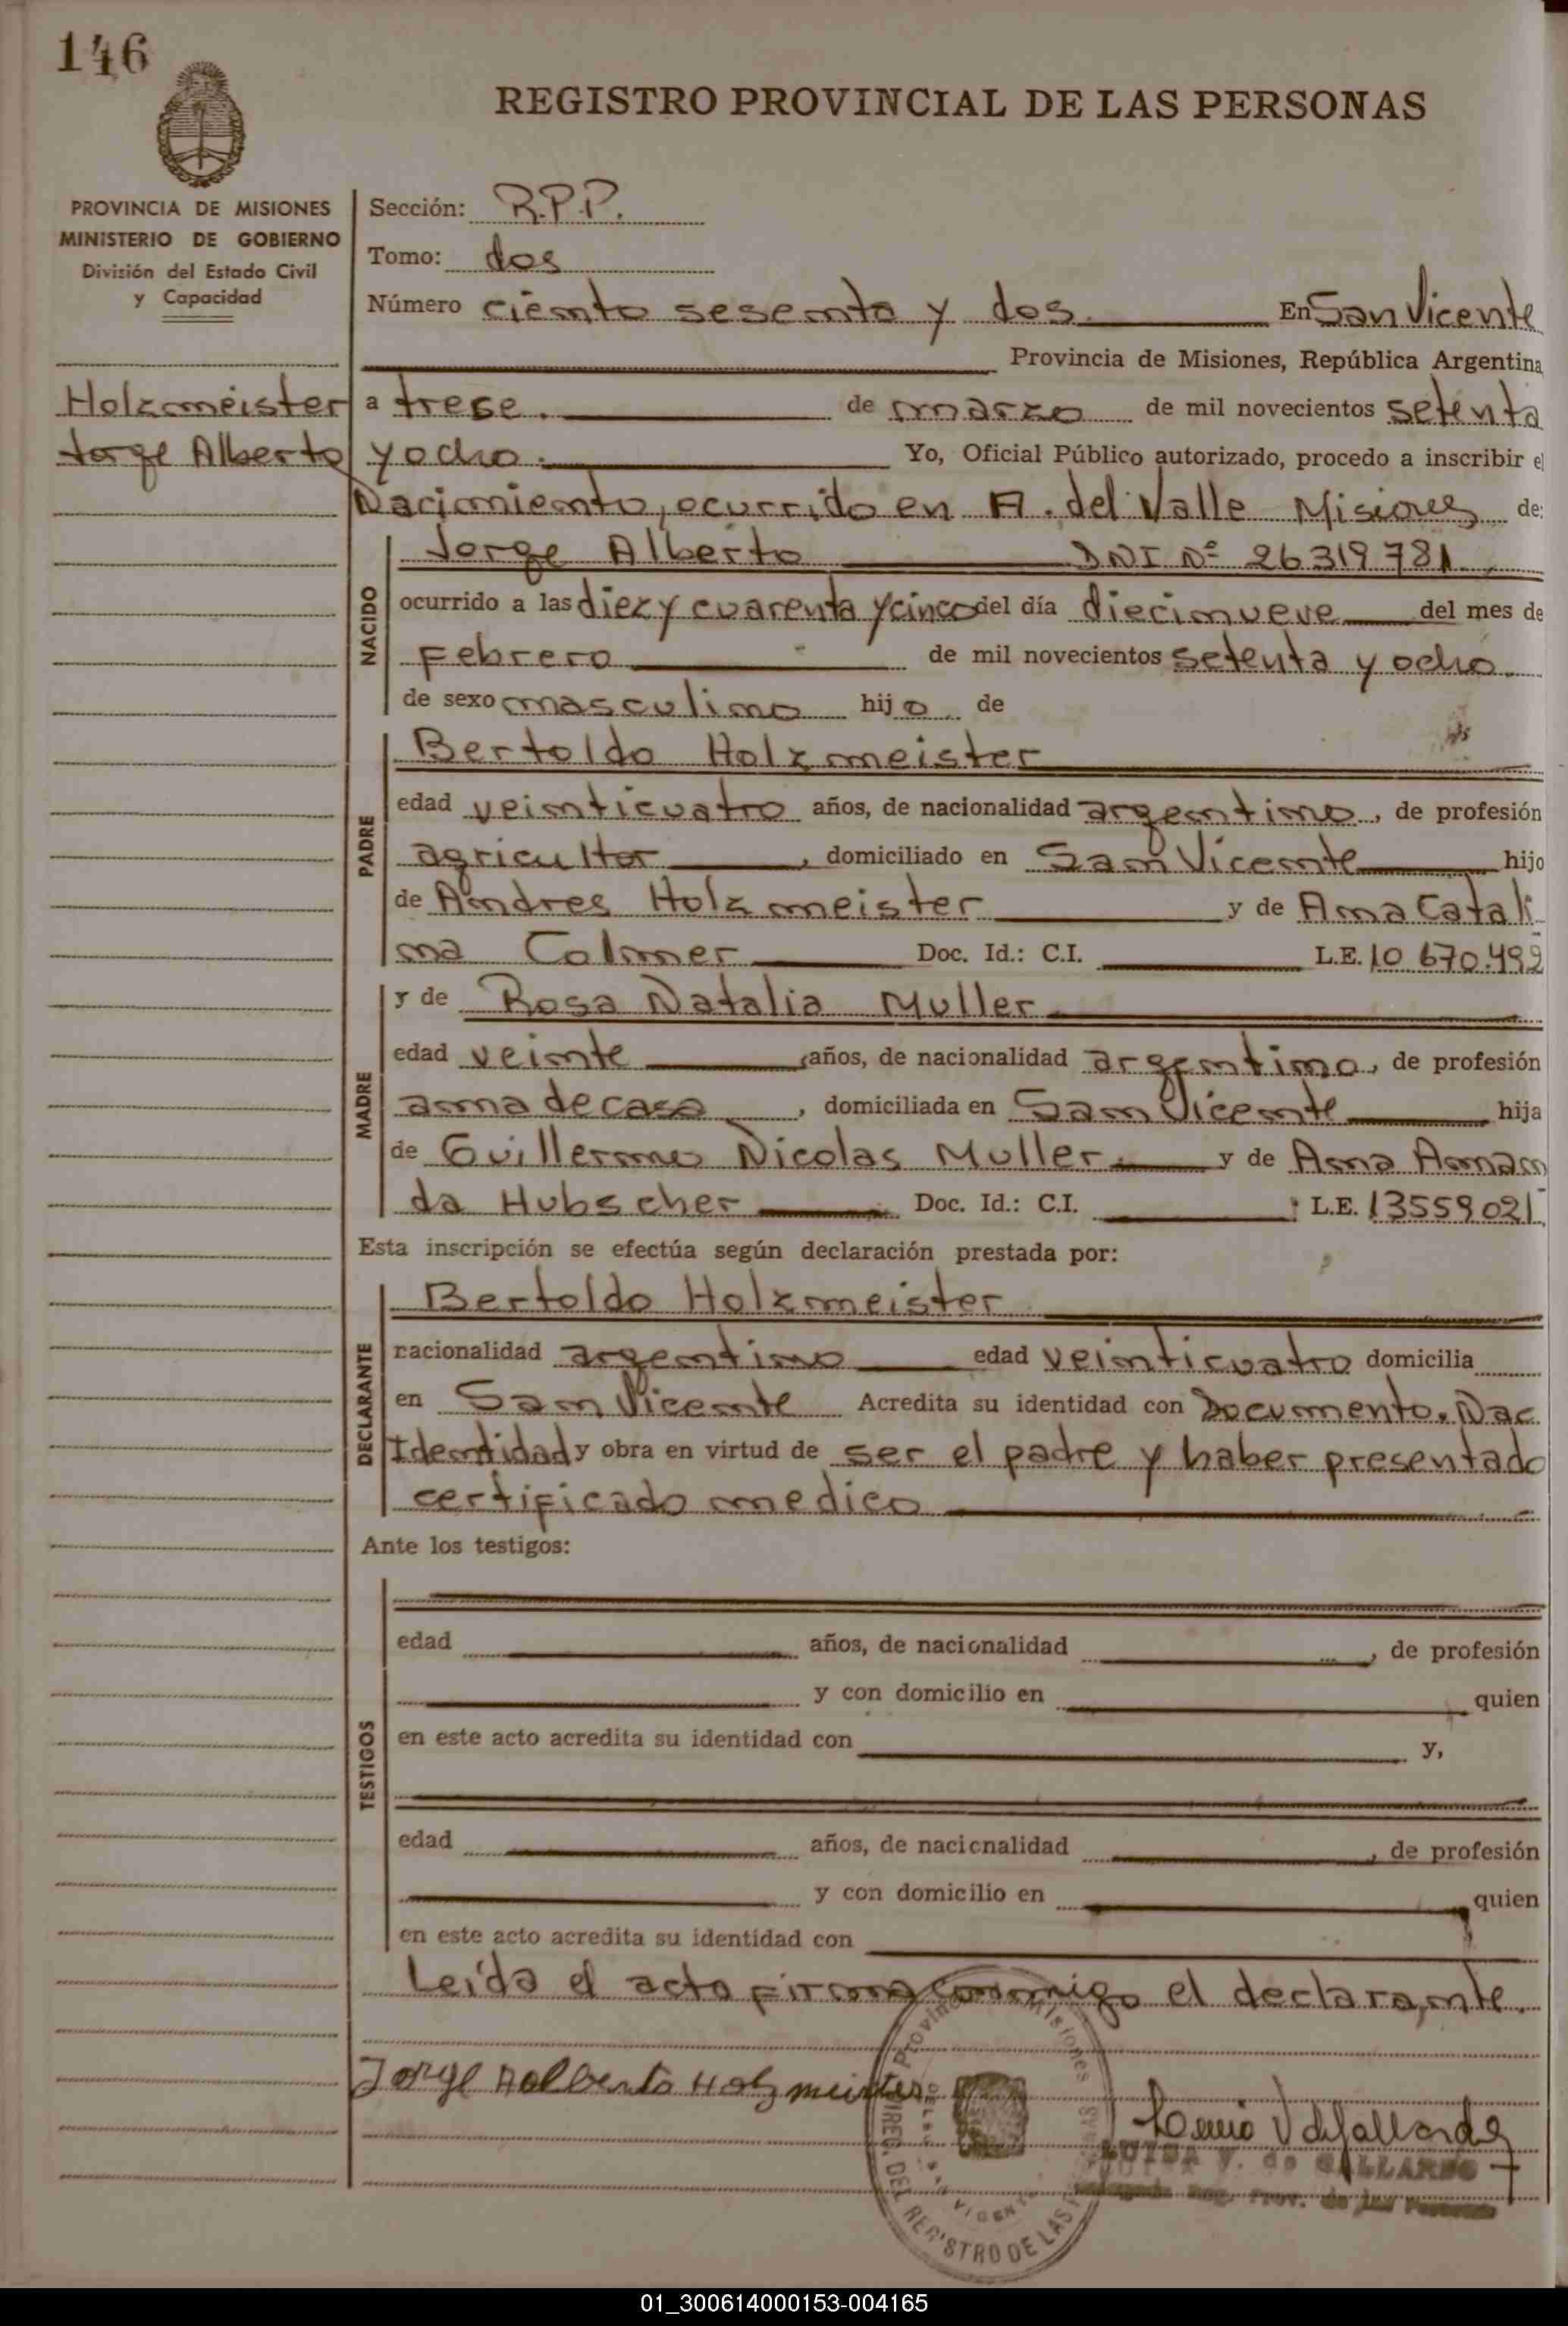 146
REGISTRO PROVINCIAL DE LAS PERSONAS
PROVINCIA DE MISIONES
MINISTERIO DE GOBIERNO
División del Estado Civil
y Capacidad
Holzmeister
Jorge Alberto
Sección: R.P.P.
Tomo: dos
Número ciento sesenta y dos. En San Vicente
Provincia de Misiones, República Argentina
a trece. de marzo de mil novecientos setenta
y ocho. Yo, Oficial Público autorizado, procedo a inscribir el
Nacimiento, ocurrido en A. del Valle Misiones de:
NACIDO
Jorge Alberto DNI Nº 26319781
ocurrido a las diez y cuarenta y cinco del día diecinueve del mes de
Febrero de mil novecientos setenta y ocho
de sexo masculino hijo de
PADRE
Bertoldo Holzmeister
edad veinticuatro años, de nacionalidad argentino, de profesión
agricultor, domiciliado en San Vicente hijo
de Andres Holzmeister y de Ana Catali
na Colmer Doc. Id.: C.I. L.E. 10.670.492
MADRE
y de Rosa Natalia Muller
edad veinte años, de nacionalidad argentina, de profesión
ama de casa, domiciliada en San Vicente hija
de Guillermo Nicolas Muller y de Ana Aman
da Hubscher Doc. Id.: C.I. L.E. 13559021
Esta inscripción se efectúa según declaración prestada por:
DECLARANTE
Bertoldo Holzmeister
nacionalidad argentino edad veinticuatro domicilia
en San Vicente Acredita su identidad con Documento. Nac
Identidad y obra en virtud de ser el padre y haber presentado
certificado medico
Ante los testigos:
TESTIGOS
edad años, de nacionalidad , de profesión
y con domicilio en quien
en este acto acredita su identidad con y,
edad años, de nacionalidad , de profesión
y con domicilio en quien
en este acto acredita su identidad con
Leída el acta firma conmigo el declarante.
Jorge Aelberto Holzmeister
LUISA V. de GALLARDO
Delegada Reg. Prov. de las Personas
Provincia Misiones
DIREC. DEL REGISTRO DE LAS PERSONAS
SAN VICENTE
01_300614000153-004165